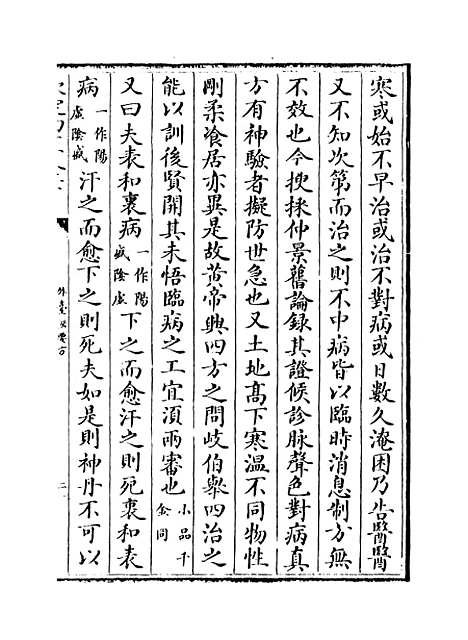 寒或始不早治或治不對病或日數久淹困乃告醫醫
又不知次第而治之則不中病皆以臨時消息制方無
不效也今搜採仲景舊論録其證候診脉聲色對病真
方有神驗者擬防世急也又土地髙下寒温不同物性
剛柔飡居亦異是故黄帝興四方之問岐伯舉四治之
能以訓後賢開其未悟臨病之工宜須兩審也小品千金同
又曰夫表和裏病一作陽盛隂虚下之而愈汗之則死裏和表
病一作陽虚隂盛汗之而愈下之則死夫如是則神丹不可以
外臺秘要方
二